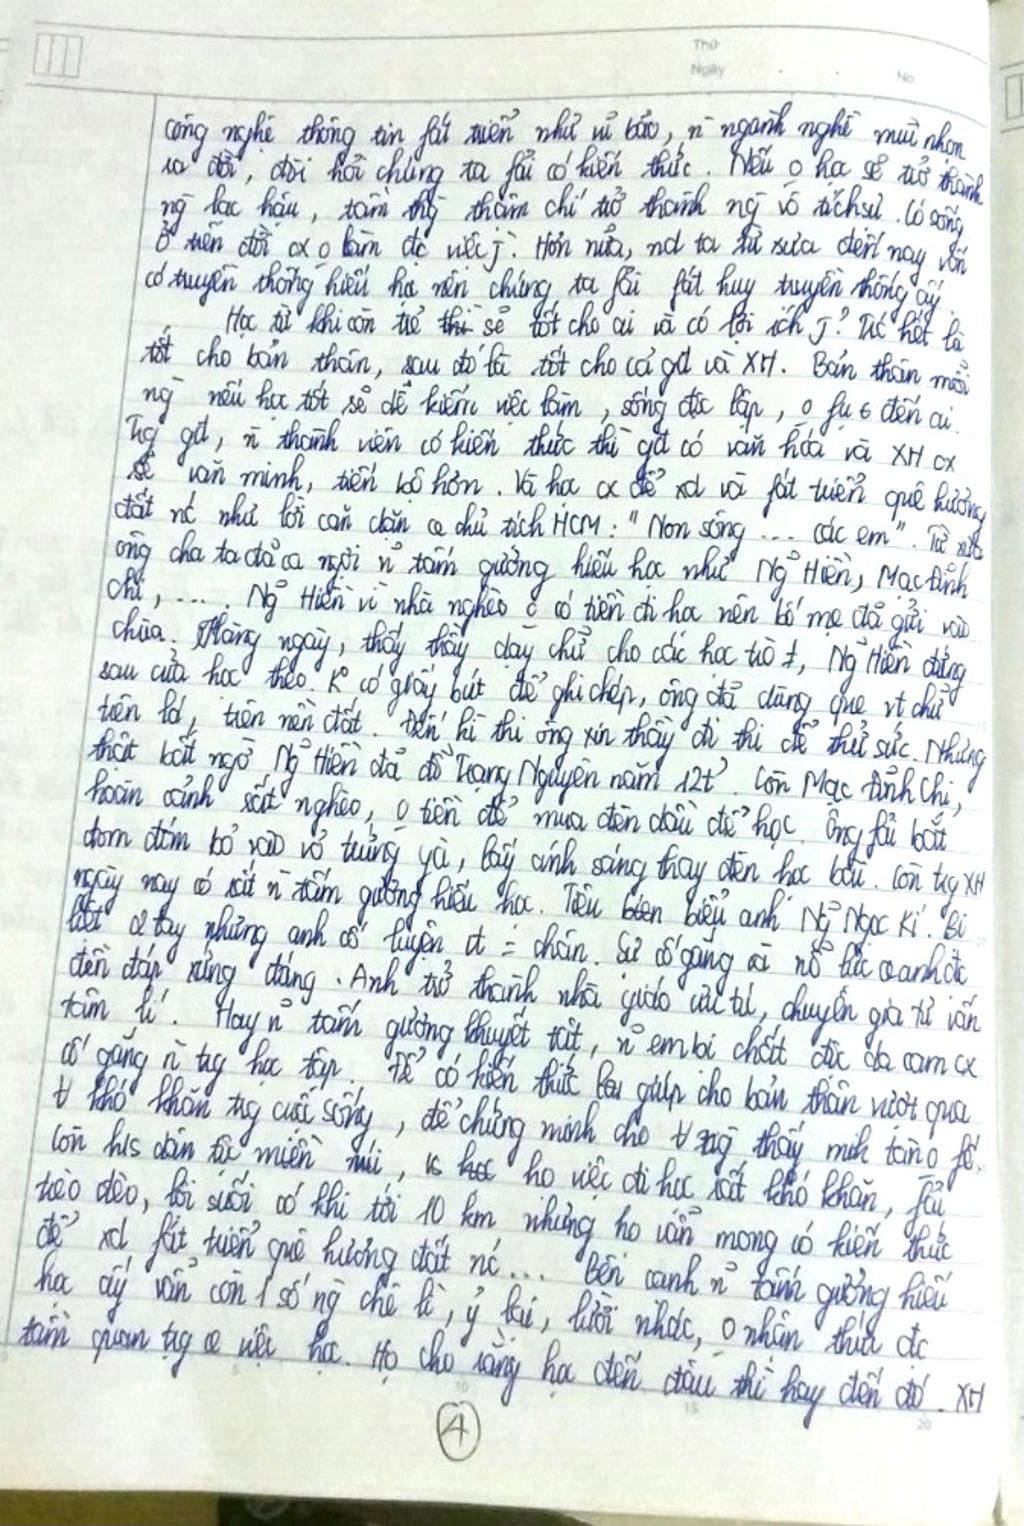 Thứ
Ngày
No
công nghệ thông tin fát triển như vũ bão, n̄ ngành nghề mũi nhọn
ra đời, đòi hỏi chúng ta fải có kiến thức. Nếu o học sẽ trở thành
ng̀ lạc hậu, tầm thg̀ thậm chí trở thành ng̀ vô tích sự. Có sống
ở trên đời cx o làm đc việc j̀. Hơn nữa, nd ta từ xưa đến nay vốn
có truyền thống hiếu học nên chúng ta fải fát huy truyền thống ấy.
Học từ khi còn trẻ thì sẽ tốt cho ai và có lợi ích j̀? Trc hết là
tốt cho bản thân, sau đó là tốt cho cả gđ và XH. Bản thân mỗi
ng̀ nếu học tốt sẽ dễ kiếm việc làm, sống độc lập, o fụ 6 đến ai.
Trg gđ, n̄ thành viên có kiến thức thì gđ có văn hóa và XH cx
sẽ văn minh, tiến bộ hơn. Và học cx để xd và fát triển quê hương
đất nc như lời căn dặn c̉a chủ tịch HCM: "Non sông ... các em". Từ xưa
ông cha ta đã ca ngợi n̉ tấm gương hiếu học như Ng̃ Hiền, Mạc Đĩnh
Chi, .... Ng̃ Hiền vì nhà nghèo o có tiền đi học nên bố mẹ đã gửi vào
chùa. Hàng ngày, thấy thầy dạy chữ cho các học trò ≠, Ng̃ Hiền đứng
sau cửa học theo. K° có giấy bút để ghi chép, ông đã dùng que vt chữ
trên lá, trên nền đất. Đến kì thi ông xin thầy đi thi để thử sức. Nhưng
thật bất ngờ Ng̃ Hiền đã đỗ Trạng Nguyên năm 12t'. Còn Mạc Đĩnh Chi,
hoàn cảnh rất nghèo, o tiền để mua đèn dầu để học. Ông fải bắt
đom đóm bỏ vào vỏ trứng gà, lấy ánh sáng thay đèn học bài. Còn trg XH
ngày nay có rất n̄ tấm gương hiếu học. Tiêu biểu anh Ng̃ Ngọc Kí. Bị
liệt 2 tay nhưng anh cố luyện vt = chân. Sự cố gắng và nỗ lực c̉a anh đc
đền đáp xứng đáng. Anh trở thành nhà giáo ưu tú, chuyên gia tư vấn
tâm lí. Hay n̉ tấm gương khuyết tật, n̉ em bị chất độc da cam cx
cố gắng n̄ trg học tập. Để có kiến thức giúp cho bản thân vượt qua
∀ khó khăn trg cuộc sống, để chứng minh cho ∀ ng̀ thấy mình tàn o fế.
Còn h/s dân tộc miền núi, học việc đi học rất khó khăn, fải
trèo đèo, lội suối có khi tới 10 km nhưng họ vẫn mong có kiến thức
để xd fát triển quê hương đất nc... Bên cạnh n̉ tấm gương hiếu
học ấy vẫn còn 1 số ng̀ chê lì, ỷ lại, lười nhác, o nhận thức đc
tầm quan trg c̉a việc học. Họ cho rằng học đến đâu thì hay đến đó. XH
4